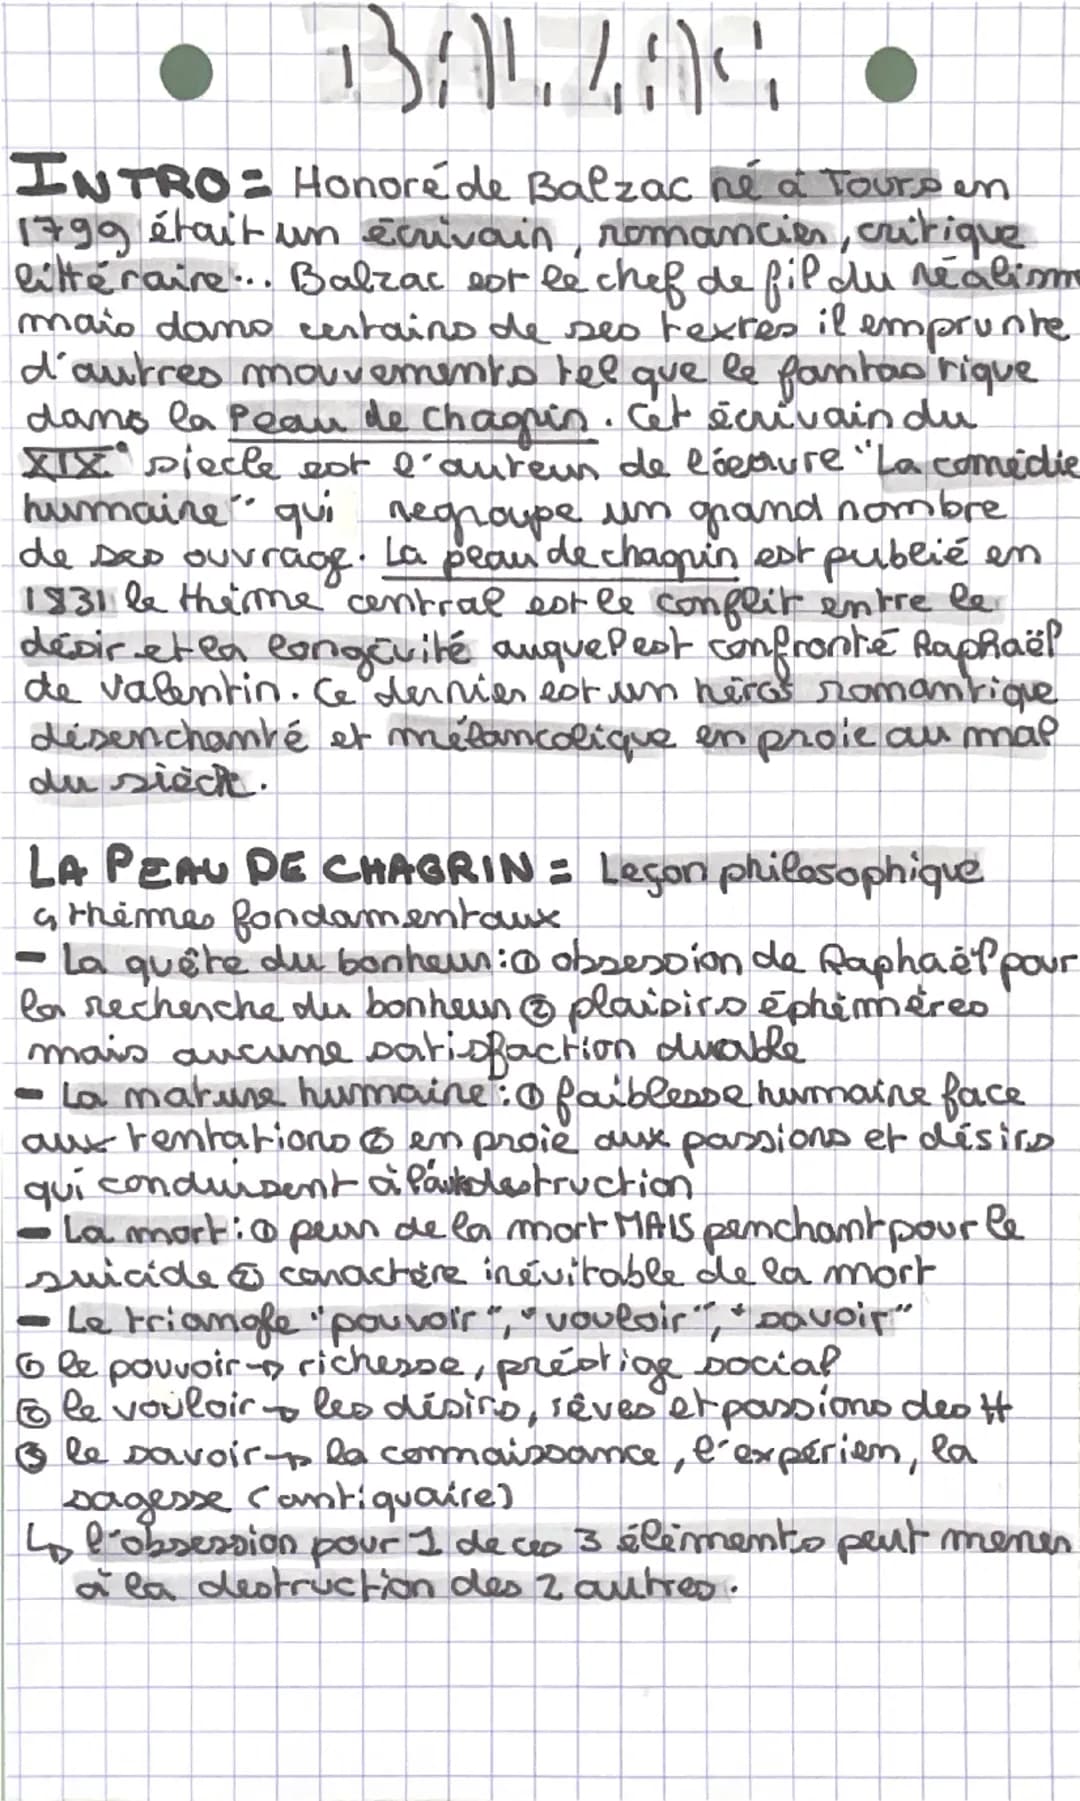 BALZAC
INTRO = Honoré de Balzac né à Tours en
1799 était un écrivain, romancier, critique
littéraire... Balzac est le chef de fil du réalism
mais dans certains de ses textes il emprunte
d'autres mouvements tel que le fantastique
dans la Peau de chagrin. Cet écrivain du
XIX° siecle est l'auteur de l'oeuvre "La comédie
humaine" qui regroupe un grand nombre
de ses ouvrage. La peau de chagrin est publié en
1831 le thème central est le conflit entre le
désir et la longévité auquel est confronté Raphaël
de Valentin. Ce dernier est un héros romantique
désenchanté et mélancolique en proie au mal
du siècle.
LA PEAU DE CHAGRIN = Leçon philosophique
↳ thèmes fondamentaux
- La quête du bonheur : ① obsession de Raphaël pour
la recherche du bonheur ② plaisirs éphémères
mais aucune satisfaction durable
- La nature humaine : ① faiblesse humaine face
aux tentations ② en proie aux passions et désirs
qui conduisent à l'autodestruction
- La mort : ① peur de la mort MAIS penchant pour le
suicide ② caractère inévitable de la mort
- Le triangle "pouvoir", "vouloir", "savoir"
① le pouvoir → richesse, préstige social
② le vouloir → les désirs, rêves et passions des H
③ le savoir → la connaissance, l'expérien, la
sagesse (antiquaire)
↳ l'obsession pour 1 de ces 3 éléments peut mener
à la destruction des 2 autres.